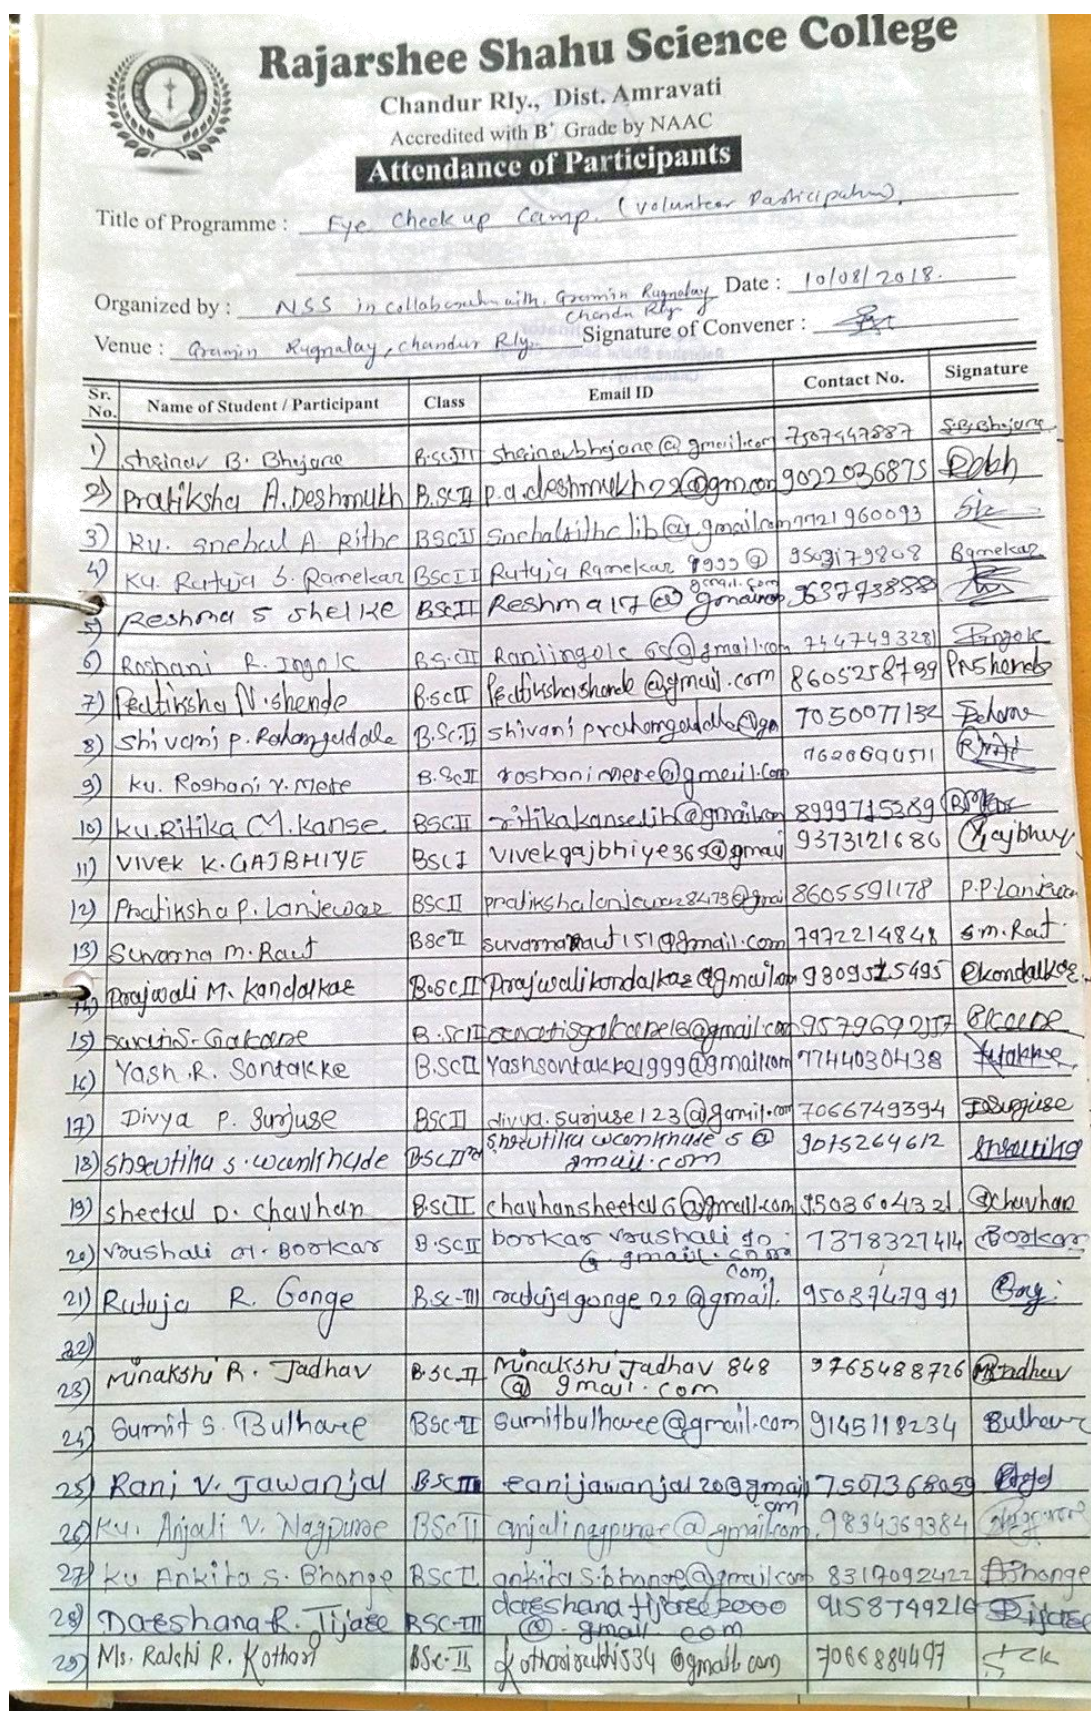 Rajarshee Shahu Science College
Chandur Rly., Dist. Amravati
Accredited with B+ Grade by NAAC
Attendance of Participants
Title of Programme : Eye Check up Camp. (Volunteer Participation).
Date : 10/08/2018.
Organized by : NSS in collaboration with Gramin Rugnalay
Chandu Rly
Venue : Gramin Rugnalay, Chandur Rly. Signature of Convener :
Sr. No. Name of Student / Participant Class Email ID Contact No. Signature
1) B. Bhojane B.Sc III @gmail.com S.B.Bhojane
2) Pratiksha A. Deshmukh B.Sc II p.a.deshmukh22@gmail.com 9022036875
3) Ku. Snehal A. Rithe BSc II 7721960093
4) Ku. Rutuja S. Ramekar BSc II Rutuja Ramekar 1999 @ Ramekar
gmail.com
5) Reshma S Shelke BSc II Reshma 17@
6) Roshani R. Ingole B.Sc II Raniingole 65@gmail.com 7447493281
7) Pratiksha N. Shende B.Sc II @gmail.com 8605258799 PNShende
8) Shivani P. B.Sc. II shivani 7050077152
9) Ku. Roshani Y. Mete B.Sc II roshanimere@gmeil.com
10) Ku. Ritika M. Kanse BSc II ritikakanselib@gmail.com 8999715389
11) VIVEK K. GAJBHIYE BSc I vivekgajbhiye365@gmail 9373121686
12) Pratiksha P. Lanjewar BSc II pratikshalanjewar8473@gmai 8605591178 P.P.Lanjewar
13) Suvarna M. Raut BSc II suvarnaraut151@gmail.com 7972214848 S.M. Raut
14) Prajwali M. Kondalkar B.Sc II Prajwalikondalkar @gmail.com Pkondalkar
15) S. Gakare B.Sc II
16) Yash. R. Sontakke B.Sc II Yashsontakke1999@gmail.com 7744030438
17) Divya P. Surjuse BSc II divya.surjuse123@gamil.com 7066749394 DSurjuse
18) Shrutika S. Wankhade BSc II shrutika wankhade 5 @ 9075264612 Shrutika
gmail.com
19) Sheetal D. Chavhan B.Sc II chavhansheetal6@gmail.com 9503604321 Chavhan
20) Vaushali Borkar B.Sc II borkar vaushali 7378327414 Borkar
com
21) Rutuja R. Gonge B.Sc-III rutujagonge22@gmail.
22)
23) Minakshi R. Jadhav B.Sc.II Minakshi Jadhav 848 9765488726 Jadhav
@ gmail.com
24) Sumit S. Bulhare BSc-II sumitbulharee@gmail.com 9145118234 Bulhare
25) Rani V. Jawanjal B.Sc III ranijawanjal20@gmail 7507368059
com
26) Ku. Anjali V. Nagpure BSc II anjalinagpurae@gmail.com 9834369384
27) Ku. Ankita S. Bhange BSc II 8317092422 ABhange
28) Darshana R. Tijare BSC-III darshana tijare2000
@ gmail com
29) Ms. Rakshi R. Kothari BSc-II @gmail.com 7066884497